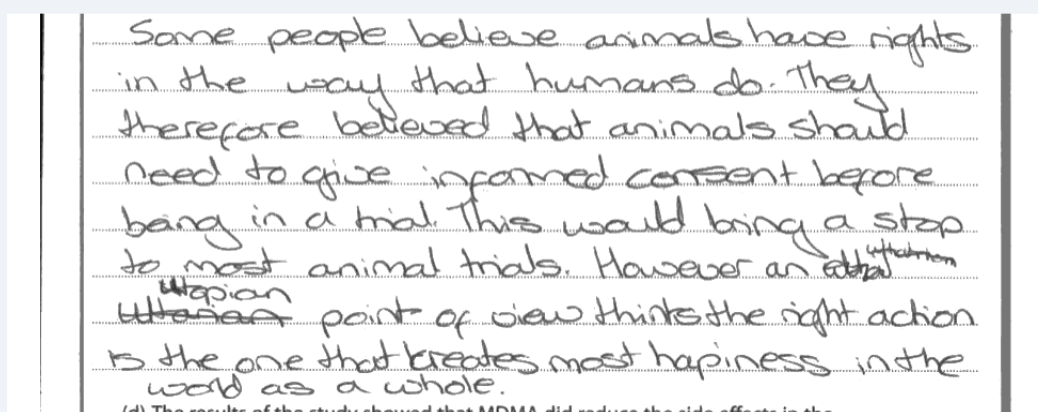 Some people believe animals have rights
in the way that humans do. They
therefore believed that animals should
need to give informed consent before
being in a trial. This would bring a stop
to most animal trials. However an
utopian
point of view thinks the right action
is the one that creates most hapiness in the
world as a whole.
(d) The results of the study showed that MDMA did reduce the side effects in the